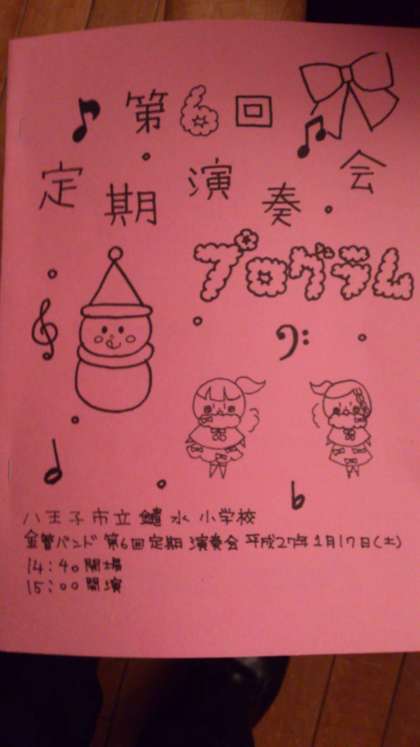 第6回
定期演奏会
プログラム
八王子市立 鑓水 小学校
金管バンド 第6回 定期 演奏会 平成27年 1月17日(土)
14:40 開場
15:00 開演